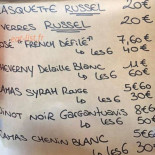 CASQUETTE RUSSEL 20€
VERRES RUSSEL 2€
"FRENCH DÉFILÉ" 7,60€
↳ LES 6 40€
CHEVERNY Delaille BLANC 11€
↳ LES 6 60€
DAMAS SYRAH ROUGE 5€60
↳ LES 6 30€
PINOT NOIR GARGANTUAVIS 8€
↳ LES 6
DAMAS CHENIN BLANC 5€60